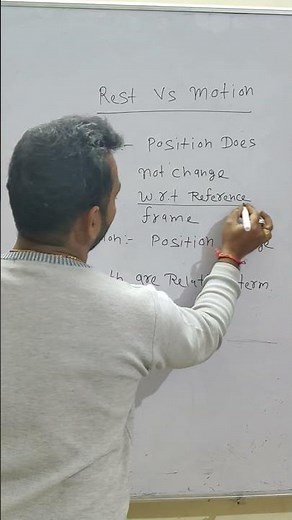 Rest Vs Motion
:- Position Does
not change
w.r.t Reference
frame
:- Position
are term